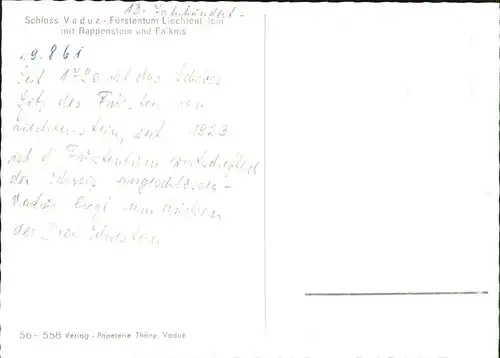 13. Jahrhundert -
Schloss Vaduz - Fürstentum Liechtenstein
mit Rappenstein und Falknis
19.8 61
Seit 1720 ist das Schloss
Sitz des Fürsten von
Liechtenstein, seit 1923
ist d. Fürstentum wirtschaftlich
der Schweiz angeschlossen -
Vaduz liegt am Rücken
der Drei Schwestern
56 - 558 Verlag - Papeterie Thöny, Vaduz